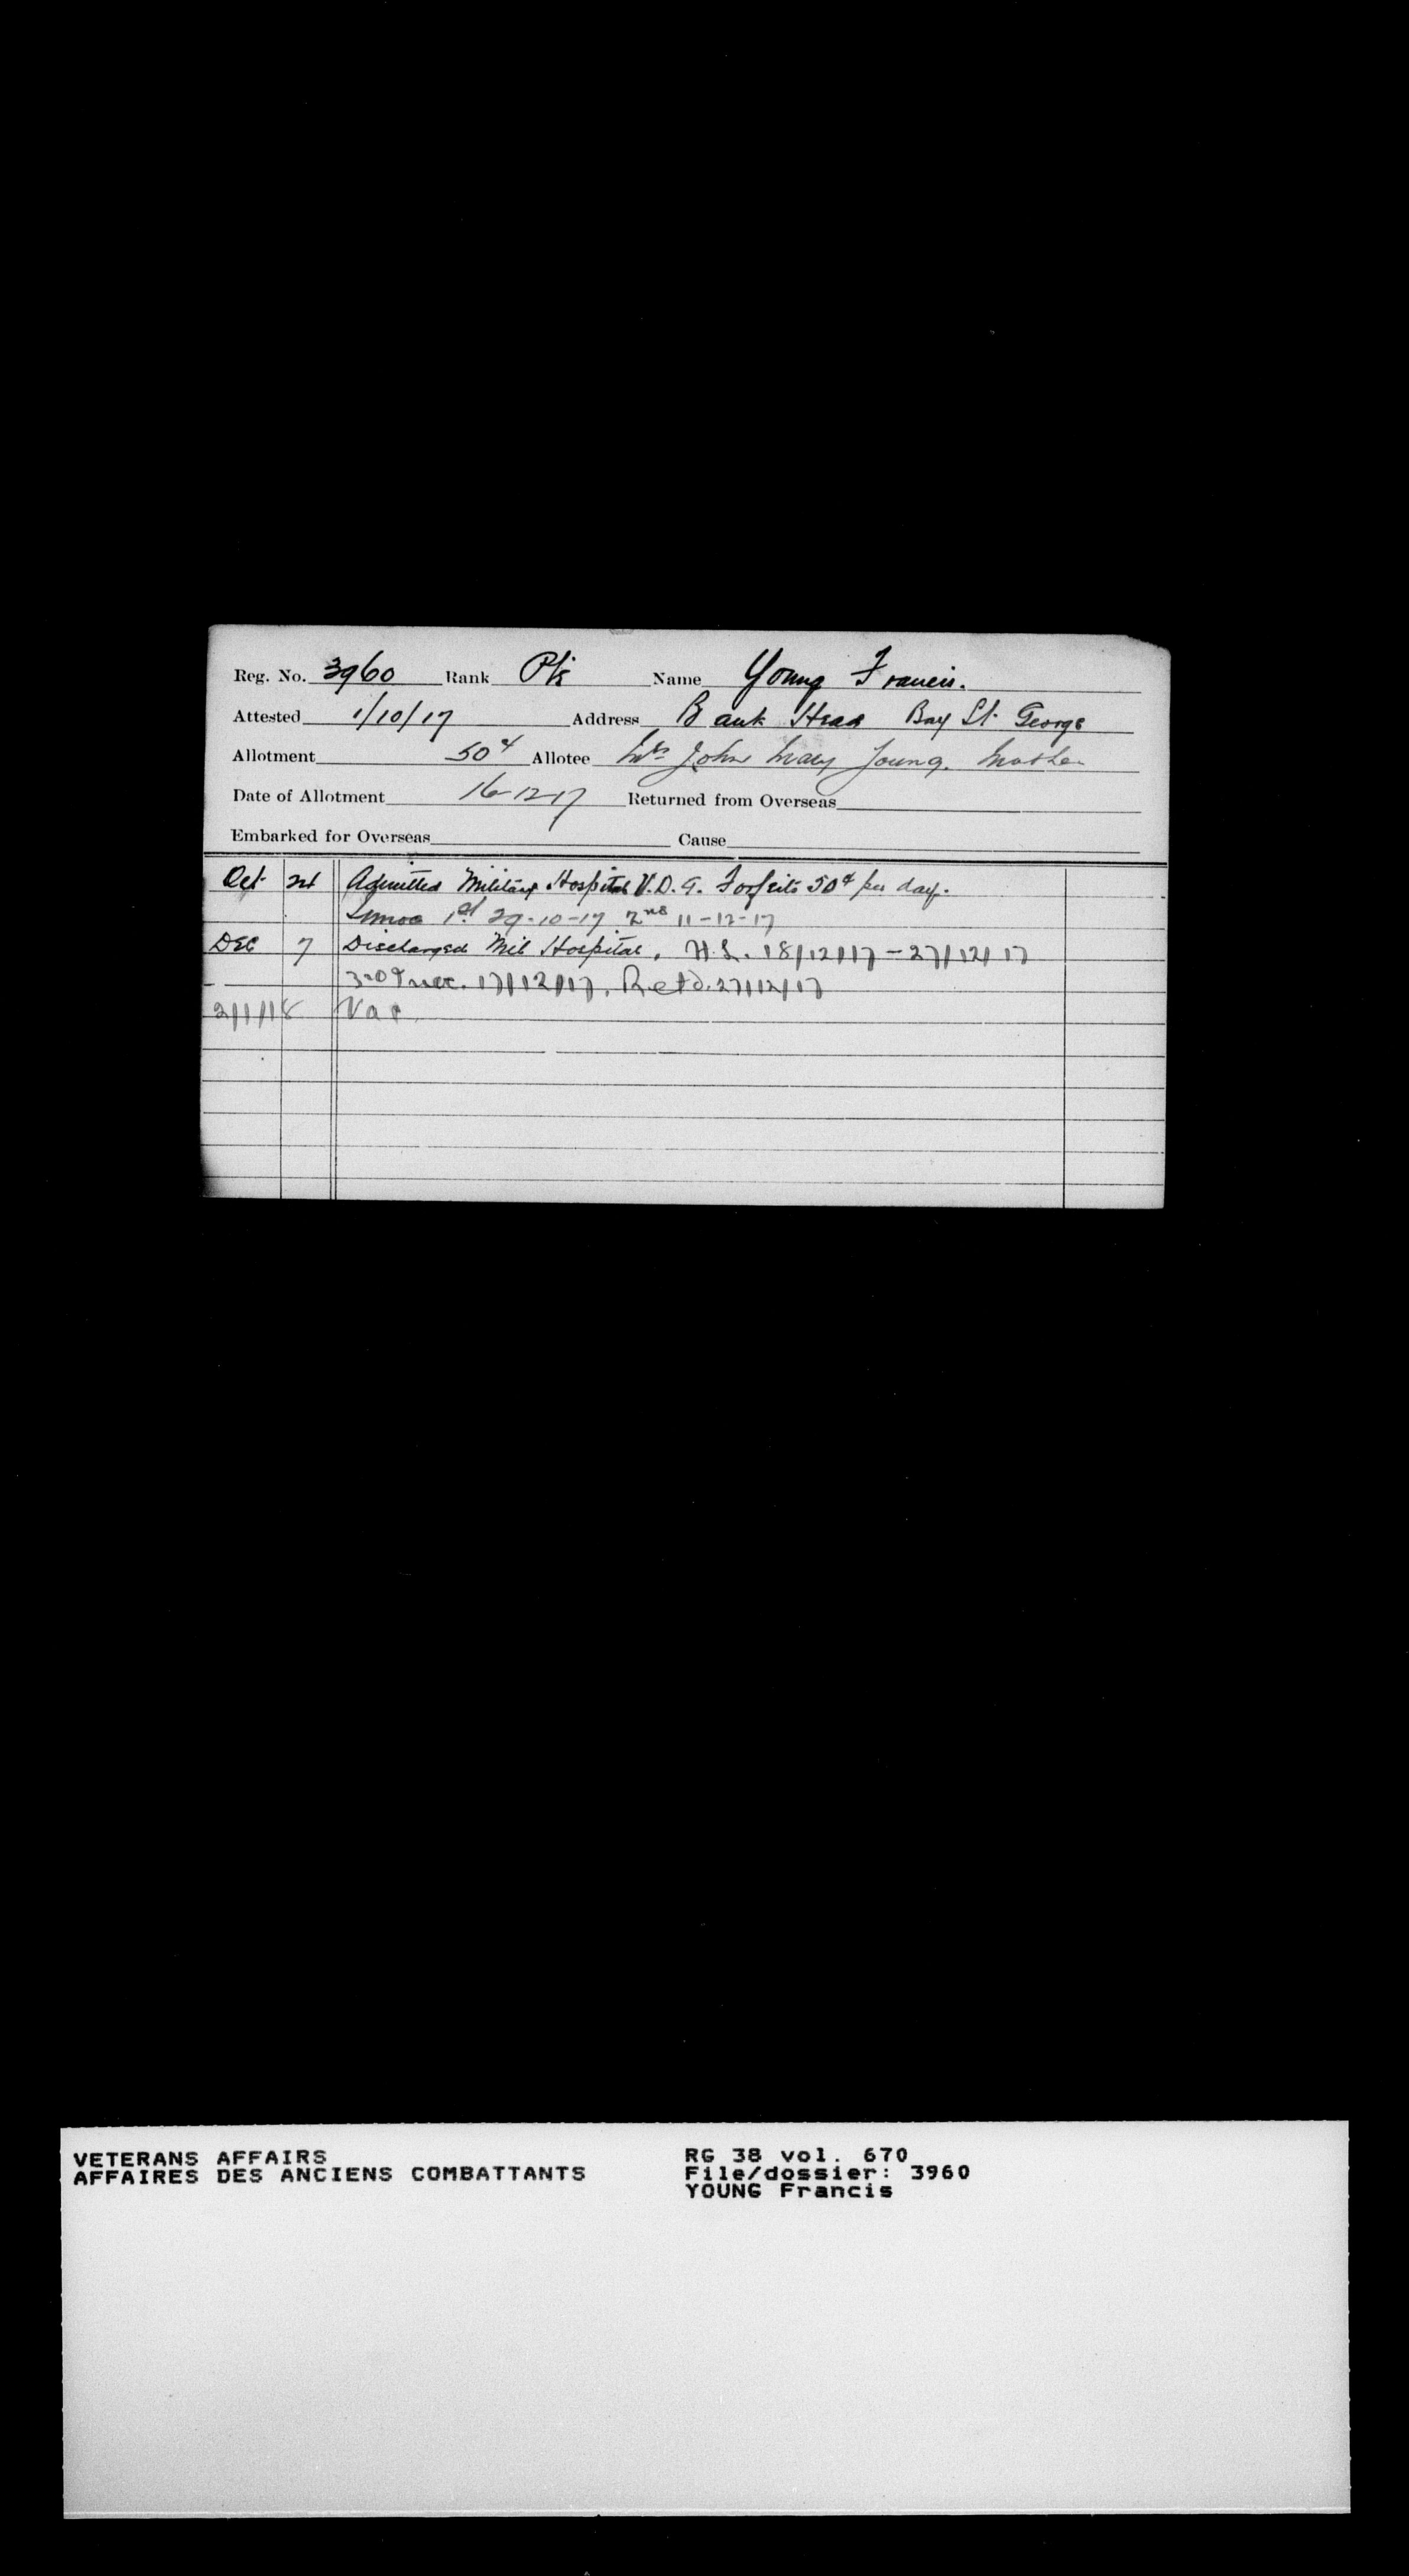 Reg. No. 3960 Rank Pte Name Young Francis.
Attested 1/10/17 Address Bank Head Bay St. George
Allotment 50¢ Allotee Mrs John Mary Young. Mother
Date of Allotment 16-12-17 Returned from Overseas
Embarked for Overseas Cause
Oct 24 Admitted Military Hospital V.D.G. Forfeits 50¢ per day.
1st 29-10-17 2nd 11-12-17
DEC 7 Discharged Mil Hospital, H.L. 18/12/17 - 27/12/17
3rd 17/12/17, Retd. 27/12/17
2/1/18 Vac.
VETERANS AFFAIRS
AFFAIRES DES ANCIENS COMBATTANTS
RG 38 vol. 670
File/dossier: 3960
YOUNG Francis